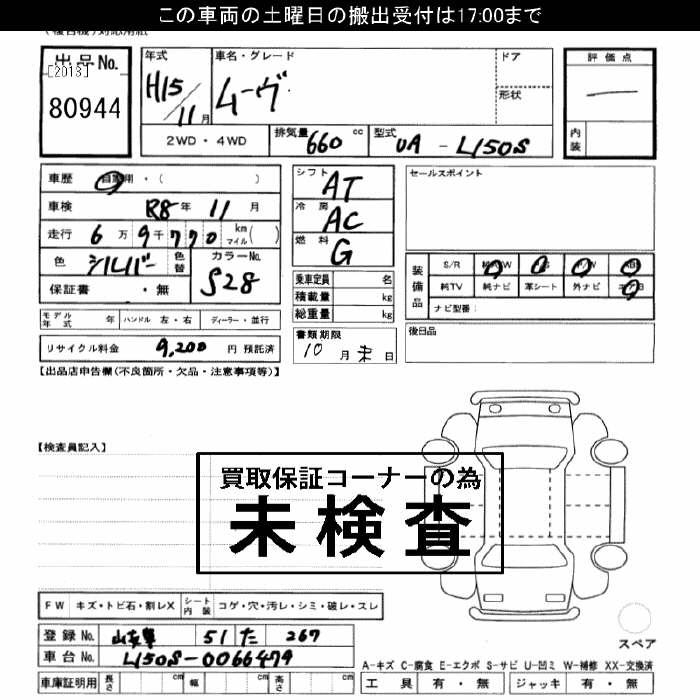 この車両の土曜日の搬出受付は17:00まで
出品No.
[2013]
80944
年式
H15/11月
車名・グレード
ムーヴ
ドア
形状
評価点
内装
2WD・4WD
排気量 660 cc
型式 UA - L150S
車歴 自家用・( )
車検 R8年 11月
走行 6万9千770 km マイル( )
色 シルバー 色替
カラーNo. S28
保証書 ・無
シフト AT
冷房 AC
燃料 G
セールスポイント
乗車定員 名
積載量 kg
総重量 kg
装備品
S/R 純AW
純TV 純ナビ 革シート 外ナビ
ナビ型番:
モデル年式 年 ハンドル 左・右 ディーラー・並行
書類期限
10月末日
後日品
リサイクル料金 9,200 円 預託済
【出品店申告欄(不良箇所・欠品・注意事項等)】
【検査員記入】
買取保証コーナーの為
未検査
FW キズ・トビ石・割レX シート内装 コゲ・穴・汚レ・シミ・破レ・スレ
登録No. 51 た 267
車台No. L150S-0066479
車庫証明用 長さ cm 幅 cm 高さ cm
スペア
A-キズ C-腐食 E-エクボ S-サビ U-凹ミ W-補修 XX-交換済
工具 有・無 ジャッキ 有・無